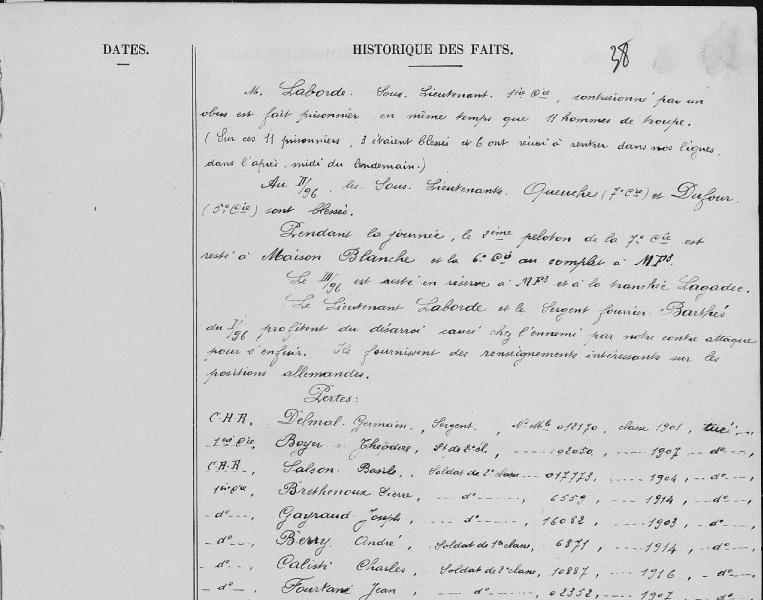 DATES.
HISTORIQUE DES FAITS.
38
M. Laborde. Sous. Lieutenant. 1ère Cie, contusionné par un
obus est fait prisonnier en même temps que 11 hommes de troupe.
(Sur ces 11 prisonniers, 3 étaient blessés et 6 ont réussi à rentrer dans nos lignes.
dans l'après-midi du lendemain.)
Au II/96, les Sous. Lieutenants. Queuche (7e Cie) et Dufour.
(5e Cie) sont blessés.
Pendant la journée, le 2ème peloton de la 7e Cie est
resté à Maison Blanche et la 6e Cie au complet à MF3.
Le III/96 est resté en réserve à MF3 et à la tranchée Lagadec.
Le Lieutenant Laborde et le Sergent fourrier Barthés
du I/96 profitent du désarroi causé chez l'ennemi par notre contre attaque
pour s'enfuir. Ils fournissent des renseignements intéressants sur les
positions allemandes.
Pertes:
C.H.R, Delmal. Germain, Sergent, N° Mle 012170, classe 1901, tué.
1ère Cie, Boyer Théodore, St de 2e cl, 02050, 1907 -do-
C.H.R, Salson. Basile, Soldat de 2e classe 017773, 1904, -do-
1ère Cie, Brethenoux Pierre, -do- 6559, 1914, -do-
-do-, Gayraud Joseph, -do- 16082, 1903, -do-
-do-, Berry André, Soldat de 1e classe, 6871, 1914, -do-
-do-, Calisti Charles, Soldat de 2e classe, 10887, 1916, -do-
-do-, Fourtané Jean, -do- 02352, 1907, -do-